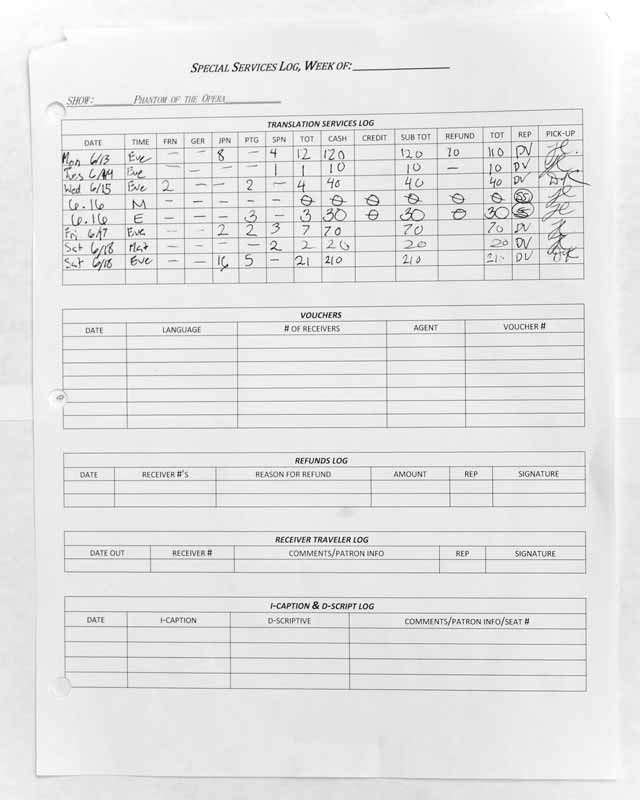 SPECIAL SERVICES LOG, WEEK OF:
SHOW: PHANTOM OF THE OPERA
TRANSLATION SERVICES LOG
DATE TIME FRN GER JPN PTG SPN TOT CASH CREDIT SUB TOT REFUND TOT REP PICK-UP
Mon 6/13 Eve — — 8 — 4 12 120 120 10 110 DV
Tues 6/14 Eve — — — 1 1 10 10 — 10 DV
Wed 6/15 Eve 2 — — 2 — 4 40 40 40 DV
6.16 M — — — — — 0 0 0 0 0 0 SS
6.16 E — — — 3 — 3 30 0 30 0 30 SS
Fri 6/17 Eve — — 2 2 3 7 70 70 70 DV
Sat 6/18 Mat — — — — 2 2 20 20 20 DV
Sat 6/18 Eve — — 16 5 — 21 210 210 210 DV
VOUCHERS
DATE LANGUAGE # OF RECEIVERS AGENT VOUCHER #
REFUNDS LOG
DATE RECEIVER #'S REASON FOR REFUND AMOUNT REP SIGNATURE
RECEIVER TRAVELER LOG
DATE OUT RECEIVER # COMMENTS/PATRON INFO REP SIGNATURE
I-CAPTION & D-SCRIPT LOG
DATE I-CAPTION D-SCRIPTIVE COMMENTS/PATRON INFO/SEAT #